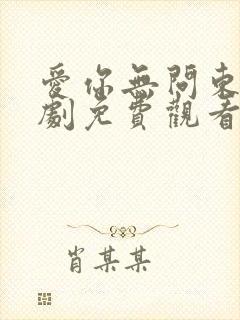 愛你無問東
劇免費觀看
肖某某